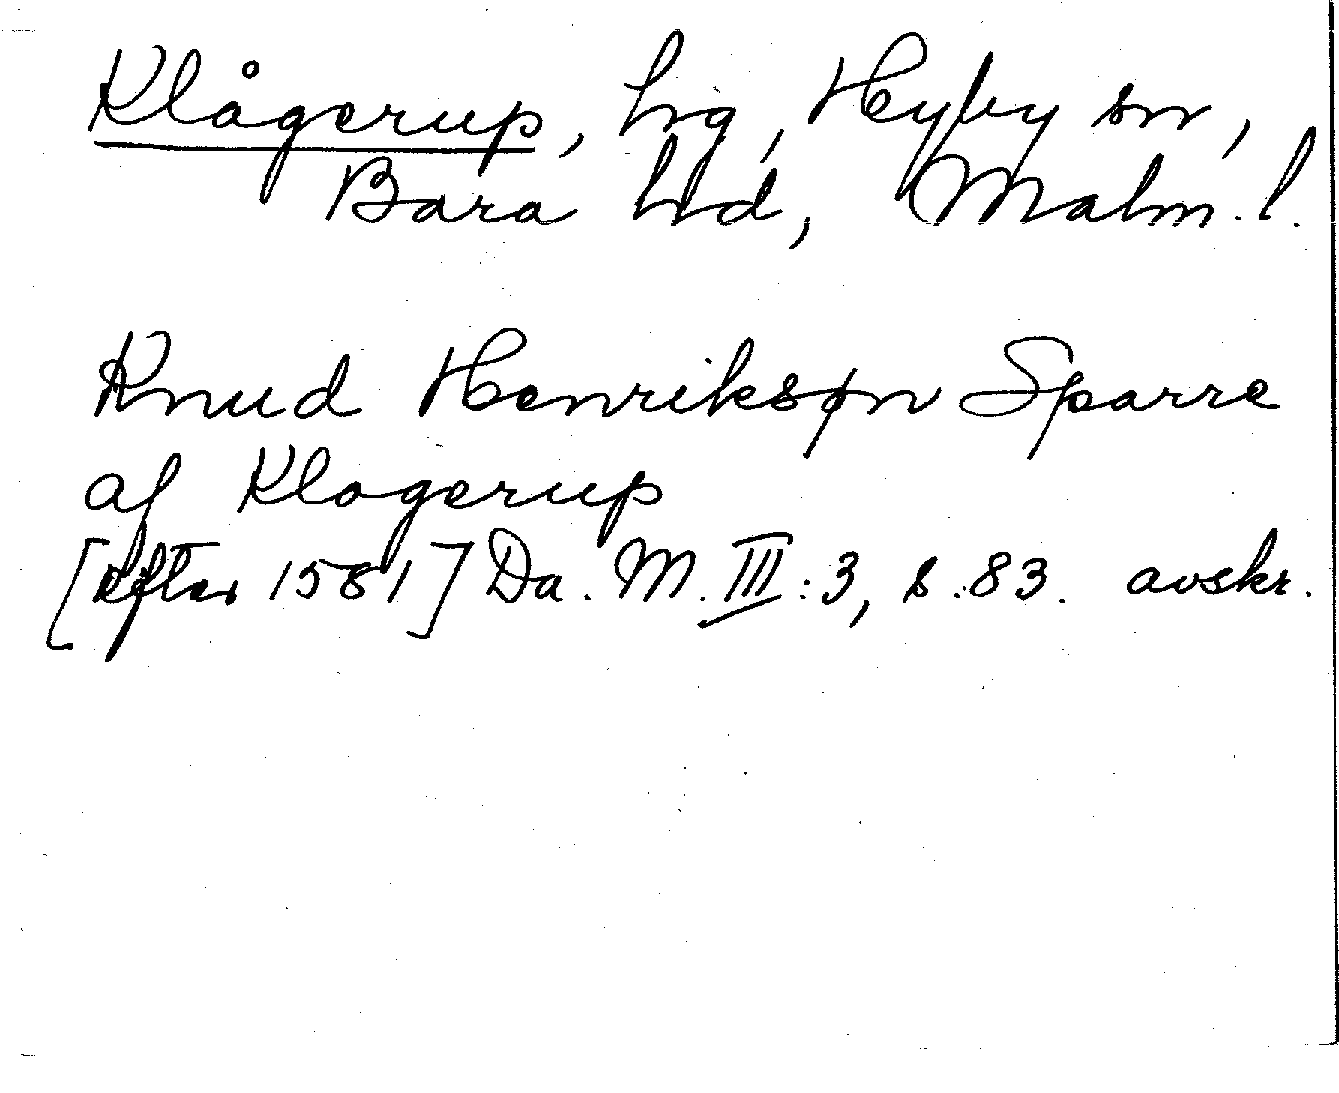 Klågerup, hg, Hyby sn,
Bara hd, Malm. l.
Knud Henriksøn Sparre
af Klogerup
[efter 1581] Da. M. III:3, s. 83. avskr.